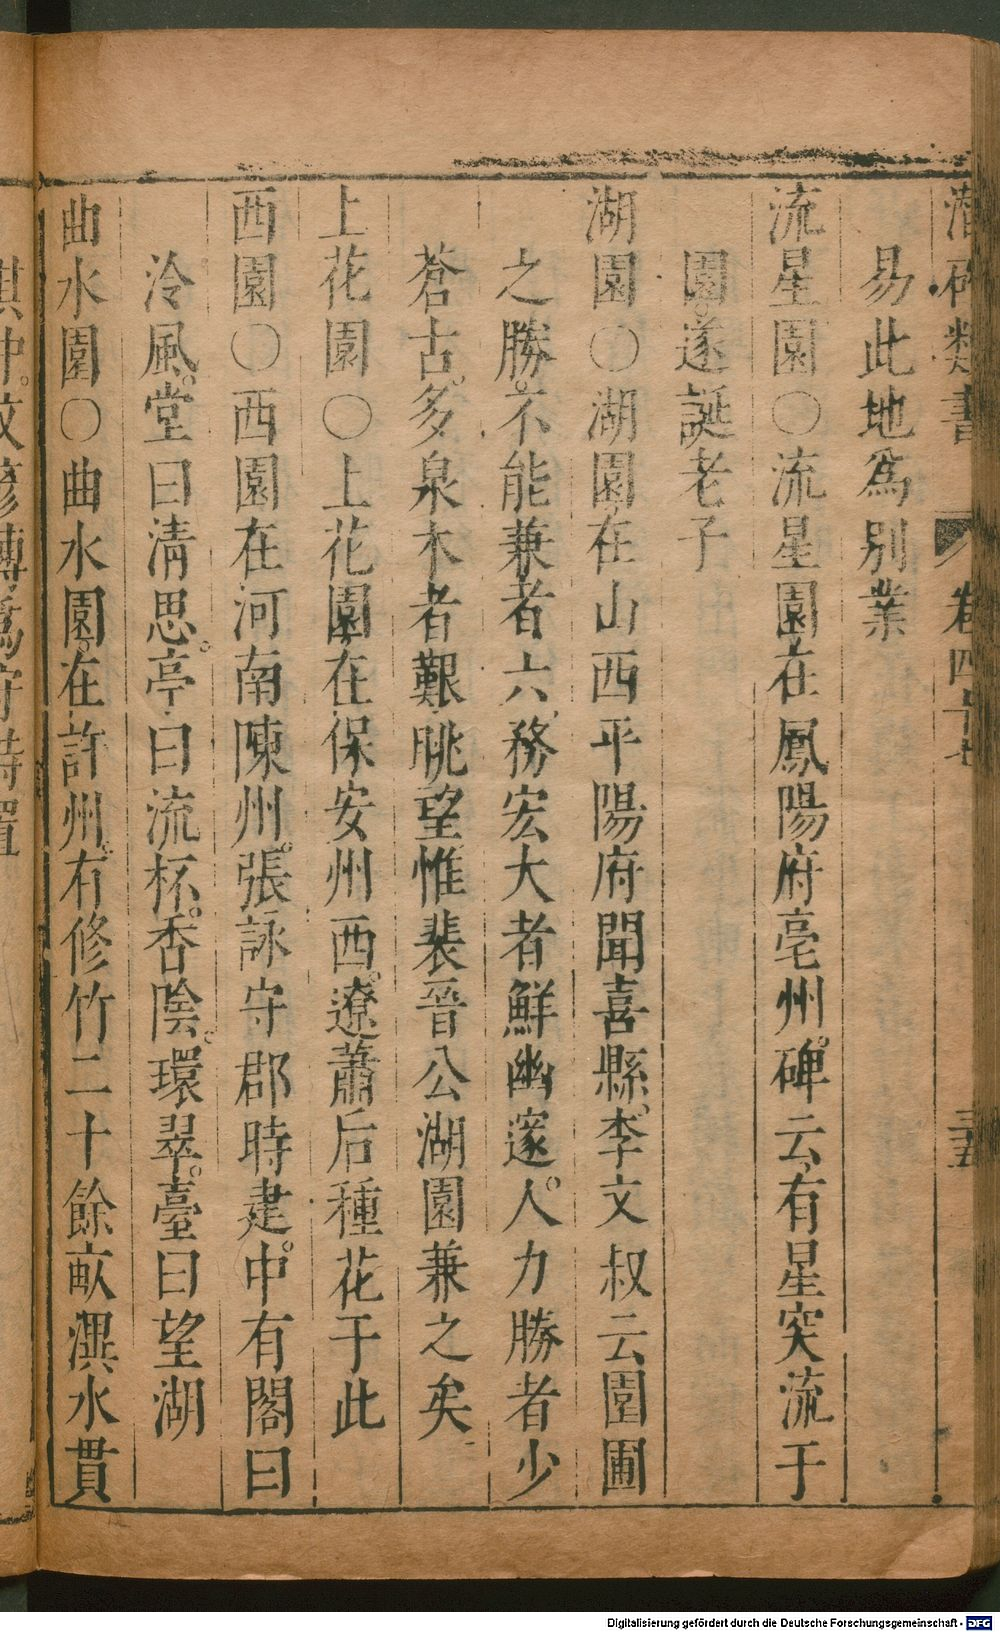 潛確類書 卷四十七 三五
易此地爲別業
流星園〇流星園在鳳陽府亳州碑云有星突流于
園遂誕老子
湖園〇湖園在山西平陽府聞喜縣李文叔云園圃
之勝不能兼者六務宏大者鮮幽邃人力勝者少
蒼古多泉木者艱眺望惟裴晉公湖園兼之矣
上花園〇上花園在保安州西遼蕭后種花于此
西園〇西園在河南陳州張詠守郡時建中有閣曰
冷風堂曰清思亭曰流杯香陰環翠臺曰望湖
曲水園〇曲水園在許州有修竹二十餘畝潩水貫
其中文彥博爲守時置
Digitalisierung gefördert durch die Deutsche Forschungsgemeinschaft - DFG